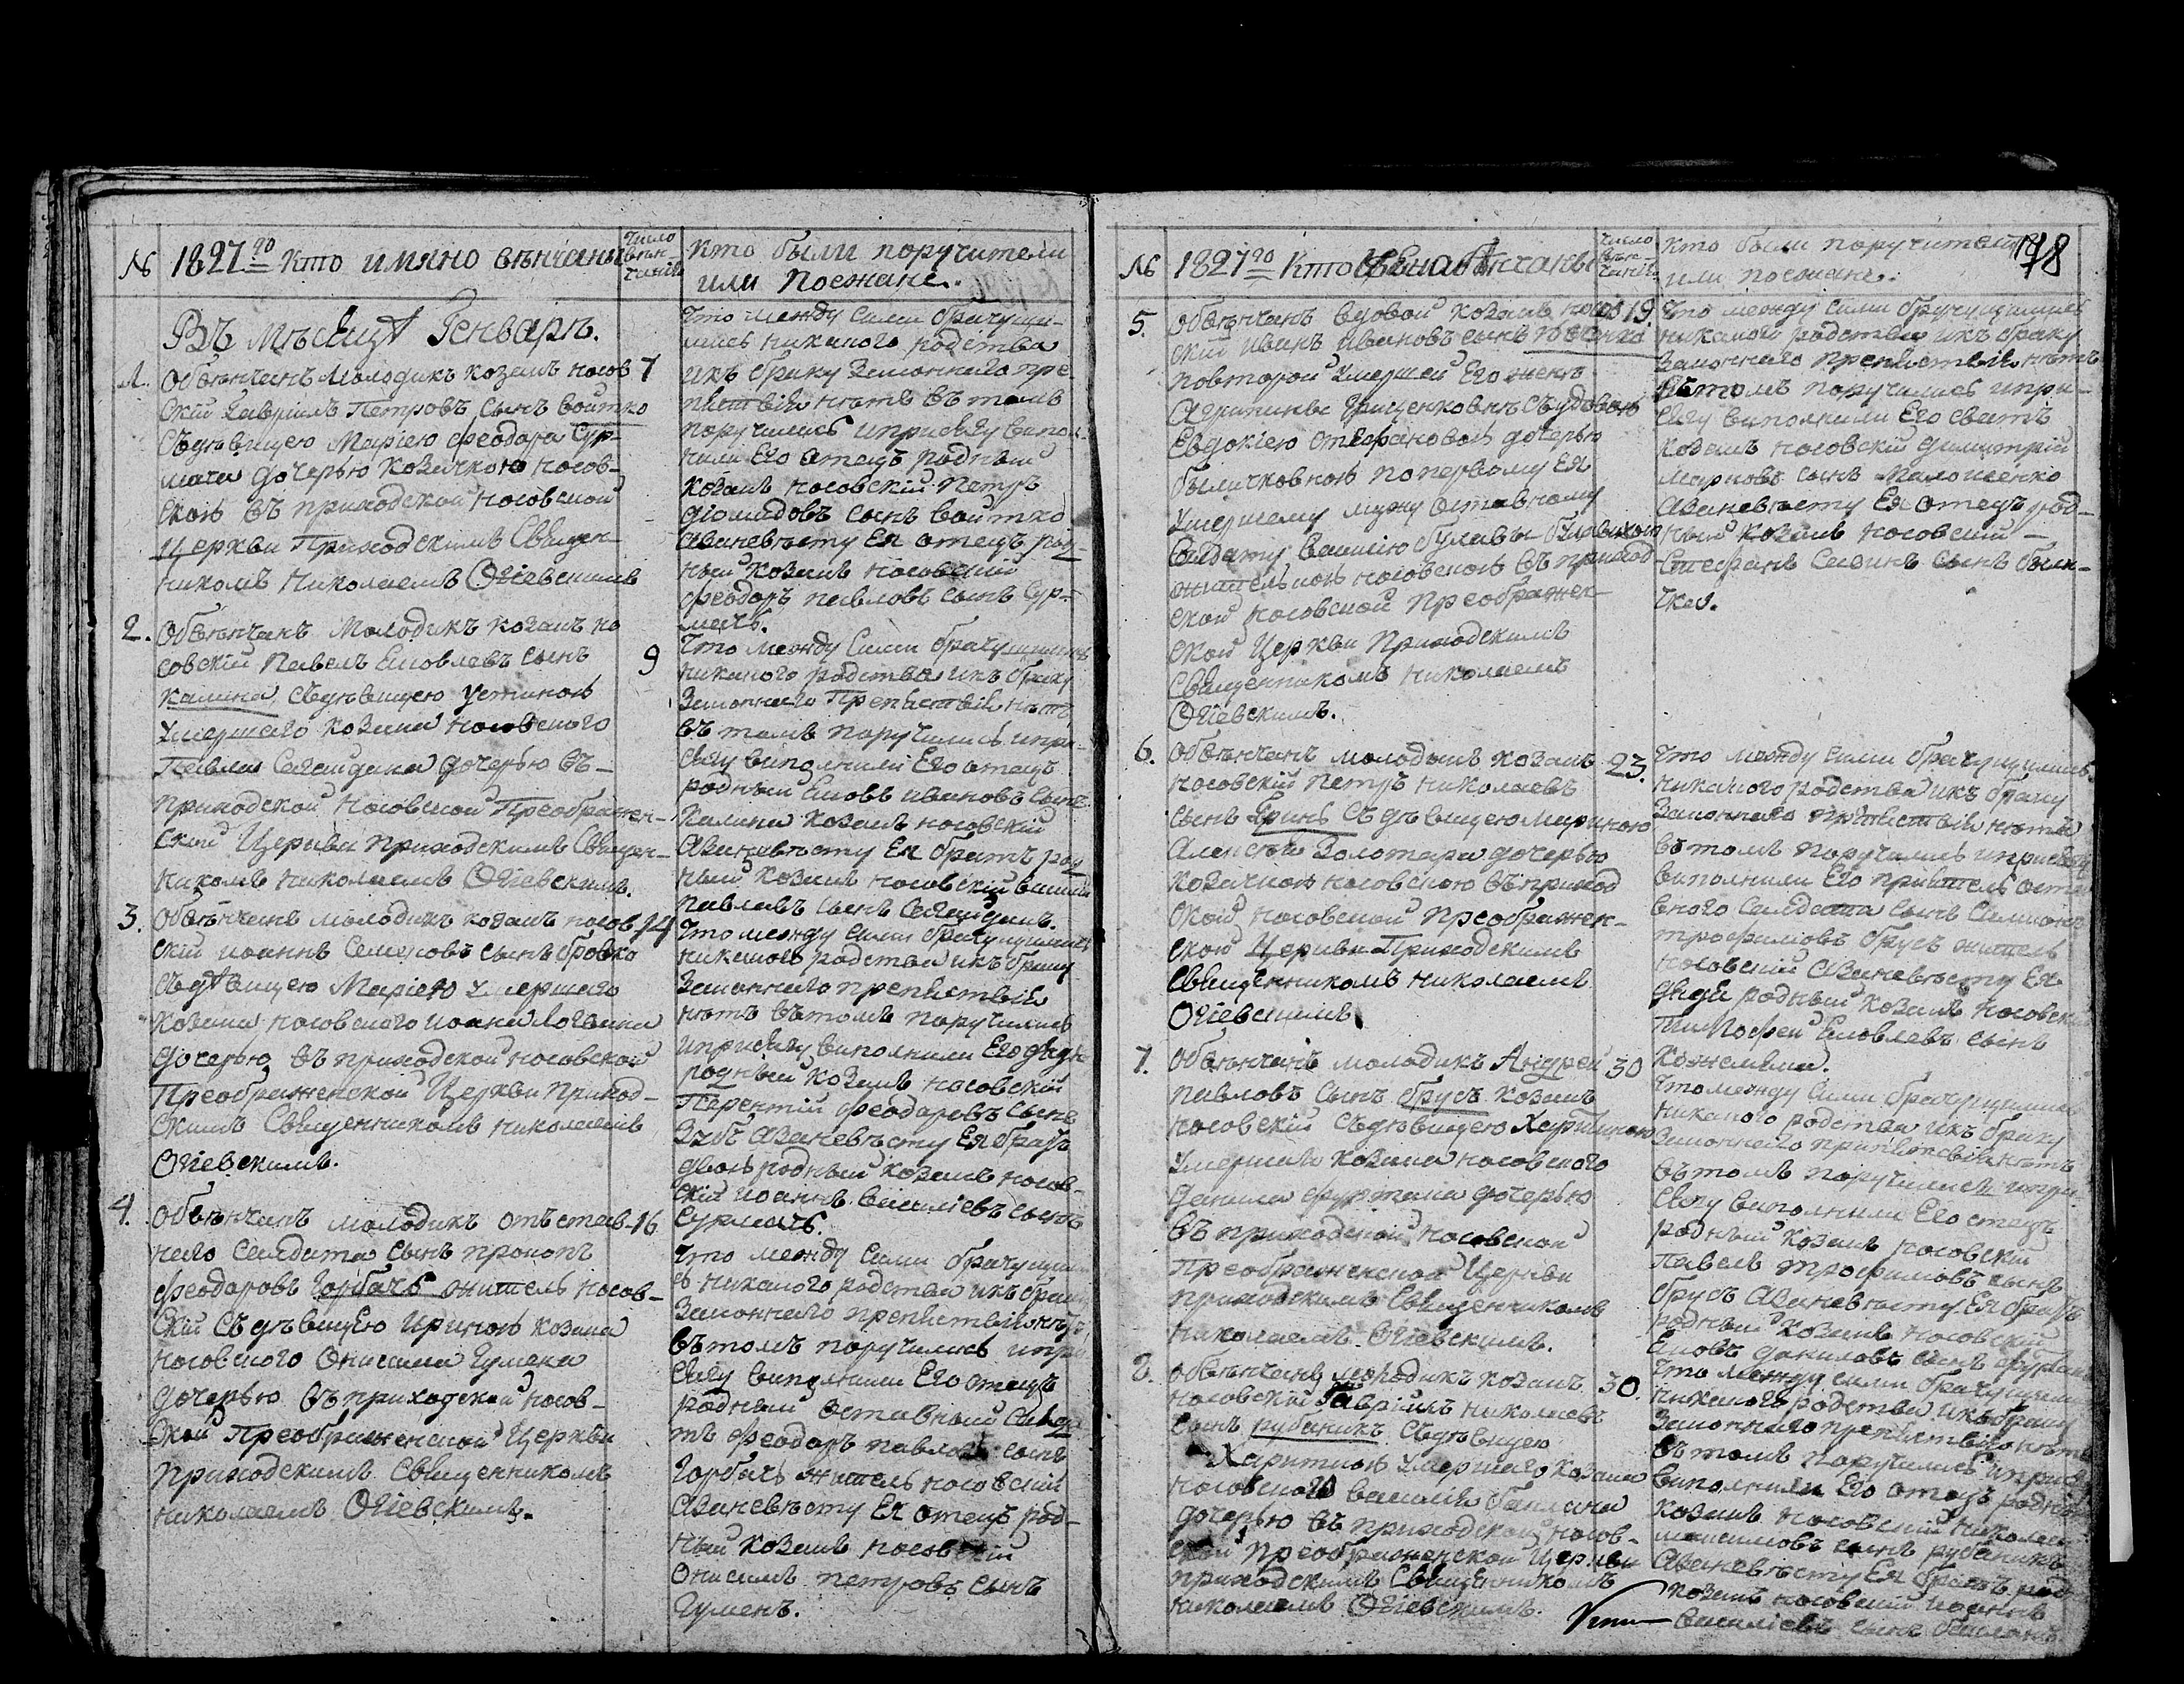 №
1827го Кто имяно вѣнчаны
Число
вѣн-
чанія
Кто были поручители
или Поежане.
Въ мѣсяцѣ Генварѣ.
1.
Обвѣнчанъ молодикъ козакъ носов
7
скій Гавріилъ Петровъ сынъ войтко
Съдѣвицею Маріею феодора Сур-
мача дочерью козачкою носов-
скою въ приходской носовской
Церкви Приходскимъ Священ-
никомъ Николаемъ Огіевскимъ
Что между сими брачущи-
мись никакого родства
икъ браку Законнаго пре-
пятствія нѣтъ въ томъ
поручились иприсягу випол-
нили Его отецъ родный
козакъ носовскій Петръ
діомидовъ сынъ войтко
аваневѣсту Ея отецъ род-
ный козакъ носовскій
феодоръ павловъ сынъ Сур-
мачъ.
2.
Обвѣнчанъ Молодикъ козакъ но
совскій Павелъ Еяковлевъ сынъ
9
Калина, Съдѣвицею устиною
Умершаго козака носовского
Павла дочерью въ-
приходской носовской Преображен-
ской Церкви приходскимъ Священ-
никомъ Николаемъ Огіевскимъ.
Что между сими брачущимись
никакого родства икъ браку
Законнаго Препятствія нѣтъ
въ томъ поручились ипри-
сягу виполнили Его отецъ
родный Ековъ ивановъ сынъ
Калина козакъ носовскій
Аваневѣсту Ея братъ род
ный козакъ носовскій
павловъ сынъ
3.
Обвѣнчанъ молодикъ козакъ носов
14
скій иоаннъ Семеновъ сынъ бровко
Съдѣвицею Маріею умершаго
козака носовского иоана Логвина
дочерью въ приходской носовской
Преображенской Церкви Приход-
скимъ Священникомъ Николаемъ
Огіевскимъ.
Что между сими брачущимись
никакого родства икъ браку
Законнаго препятствія
нѣтъ въ томъ поручились
иприсягу виполнили Его дядя
родный козакъ носовскій
Терентій феодоровъ сынъ
Зубъ Аваневѣсту Ея братъ
двоюродный козакъ носов-
скій иоаннъ василіевъ сынъ
Сурмачъ.
4.
Обвѣнчанъ молодикъ отъстав-
16
наго Салдата сынъ прокопъ
феодоровъ Горбачъ житель носов-
скій Съдѣвицею Ириною козака
носовского Онисима Гумена
дочерью въ приходской носов-
ской Преображенской Церкви
приходскимъ Священникомъ
Николаемъ Огіевскимъ.
Что между сими брачущими
сь никакого родства икъ браку
Законнаго препятствія нѣтъ
въ томъ поручились ипри
сягу виполнили Его отецъ
родный оставный Салда
тъ феодоръ павловъ сынъ
Горбачъ житель носовскій
Аваневѣсту Ея отецъ род-
ный козакъ носовскій
Онисимъ петровъ сынъ
Гуменъ.
№
1827го Кто вѣнчаны
Число
вѣн-
чанія
Кто были поручители
или поежане.
178
5.
Обвѣнчанъ вдовой козакъ носов
19.
скій иванъ ивановъ сынъ
повторой умершей Его женѣ
Агрипины Грищенковнѣ Съудовою
Евдокіею Стефановою дочерью
бѣличковною попервому Ея
умершему мужу отставному
Салдату василію булавы
жительною носовскою въ приход
ской носовской Преображен-
ской Церкви Приходскимъ
Священникомъ Николаемъ
Огіевскимъ.
Что между сими брачущимись
никакого родства икъ браку
Законнаго препятствія нѣтъ
въ томъ поручились ипри-
сягу виполнили Его сватъ
козакъ носовскій Димитрій
Марковъ сынъ
Аваневѣсту Ея отецъ род-
ный козакъ носовскій -
Стефанъ Савинъ сынъ бѣли-
чка.
6.
Обвѣнчанъ молодикъ козакъ
23.
носовскій Петръ Николаевъ
сынъ Яринъ Съдѣвицею Мариною
Алексѣя Золотаря дочерью
козачкою носовскою въ приход
ской носовской преображен-
ской Церкви Приходскимъ
Священникомъ Николаемъ
Огіевскимъ.
Что между сими брачущимись
никакого родства икъ браку
Законнаго препятствія нѣтъ
въ томъ поручились иприсягу
виполнили Его пріятель оста
вного Салдата сынъ Симеонъ
трофимовъ брусъ житель
носовскій Аваневѣсту Ея
дядя родный козакъ носовскій
Тимофей Еяковлевъ сынъ
Кожемяка.
7.
Обвѣнчанъ молодикъ Андрей
30
павловъ сынъ брусъ козакъ
носовскій Съдѣвицею Харитиною
Умершаго козака носовского
Данила фуртата дочерью
въ приходской носовской
Преображенской Церкви
приходскимъ Священникомъ
Николаемъ Огіевскимъ.
Что между сими брачущимись
никакого родства икъ браку
Законнаго препятствія нѣтъ
въ томъ поручились ипри
сягу виполнили Его отецъ
родный козакъ носовскій
Павелъ трофимовъ сынъ
брусъ Аваневѣсту Ея братъ
родный козакъ носовскій
Ековъ даниловъ сынъ
8.
Обвѣнчанъ молодикъ козакъ
30.
носовскій Гавріилъ Николаевъ
сынъ рубаникъ Съдѣвицею
Харитиною умершаго козака
носовского василія баклана
дочерью въ приходской носов-
ской Преображенской Церкви
приходскимъ Священникомъ
Николаемъ Огіевскимъ.
Что между сими брачущимись
никакого родства икъ браку
Законнаго препятствія нѣтъ
въ томъ поручились иприсягу
виполнили Его отецъ родный
козакъ носовскій Николай
максимовъ сынъ рубаникъ
Аваневѣсту Ея братъ род
козакъ носовскій иоаннъ
василіевъ сынъ бакланъ.